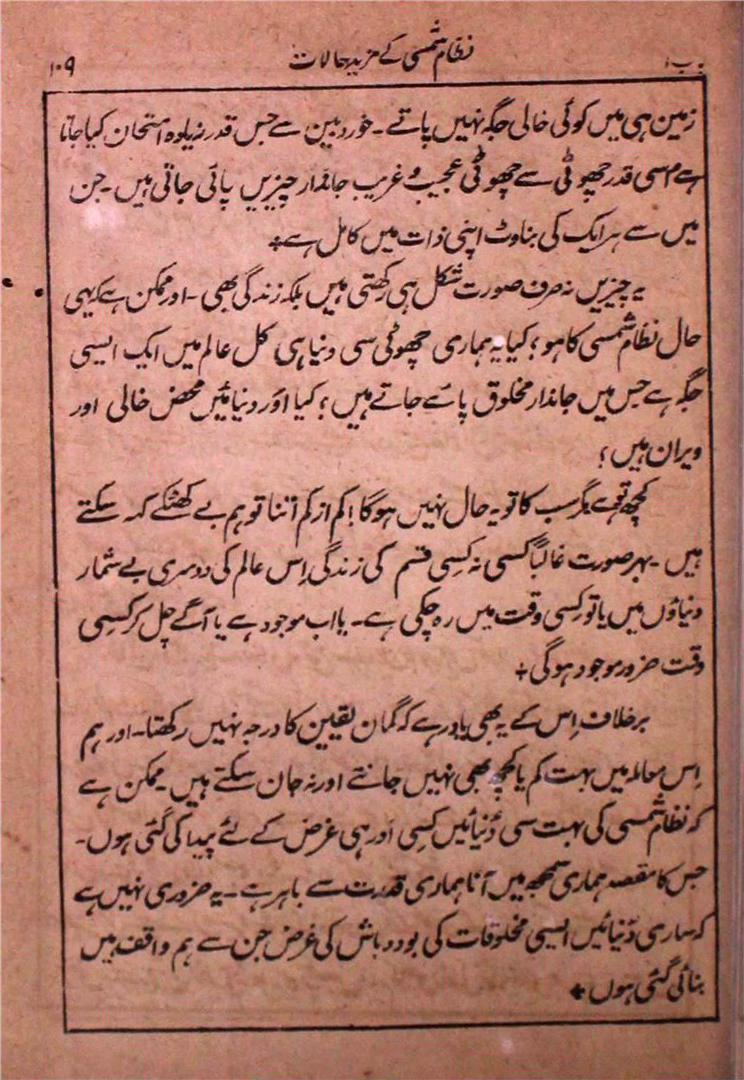 باب ۱ نظام شمسی کے مزید حالات ۱۰۹
زمین ہی میں کوئی خالی جگہ نہیں پاتے۔ خوردبین سے جس قدر زیادہ امتحان کیا جاتا
ہے اُسی قدر چھوٹی سے چھوٹی عجیب و غریب جاندار چیزیں پائی جاتی ہیں۔ جن
میں سے ہر ایک کی بناوٹ اپنی ذات میں کامل ہے +
یہ چیزیں نہ صرف صورت شکل ہی رکھتی ہیں بلکہ زندگی بھی۔ اور ممکن ہے کہ یہی
حال نظام شمسی کا ہو؛ کیا یہ ہماری چھوٹی سی دنیا ہی کل عالم میں ایک ایسی
جگہ ہے جس میں جاندار مخلوق پائے جاتے ہیں؛ کیا اَور دنیائیں محض خالی اور
ویران ہیں؛
کچھ تو ہے مگر سب کا تو یہ حال نہیں ہوگا! کم از کم اتنا تو ہم بے کھٹکے کہہ سکتے
ہیں۔ بہر صورت غالباً کسی نہ کسی قسم کی زندگی اِس عالم کی دوسری بے شمار
دنیاؤں میں یا تو کسی وقت میں رہ چکی ہے۔ یا اب موجود ہے یا آگے چل کر کسی
وقت ضرور موجود ہوگی +
برخلاف اِس کے یہ بھی یاد رہے کہ گمان یقین کا درجہ نہیں رکھتا۔ اور ہم
اِس معاملہ میں بہت کم یا کچھ بھی نہیں جانتے اور نہ جان سکتے ہیں۔ ممکن ہے
کہ نظام شمسی کی بہت سی دُنیائیں کسی اَور ہی غرض کے لئے پیدا کی گئی ہوں۔
جس کا مقصد ہماری سمجھ میں آنا ہماری قدرت سے باہر ہے۔ یہ ضروری نہیں ہے
کہ ساری دُنیائیں ایسی مخلوقات کی بود و باش کی غرض جن سے ہم واقف ہیں
بنائی گئی ہوں +